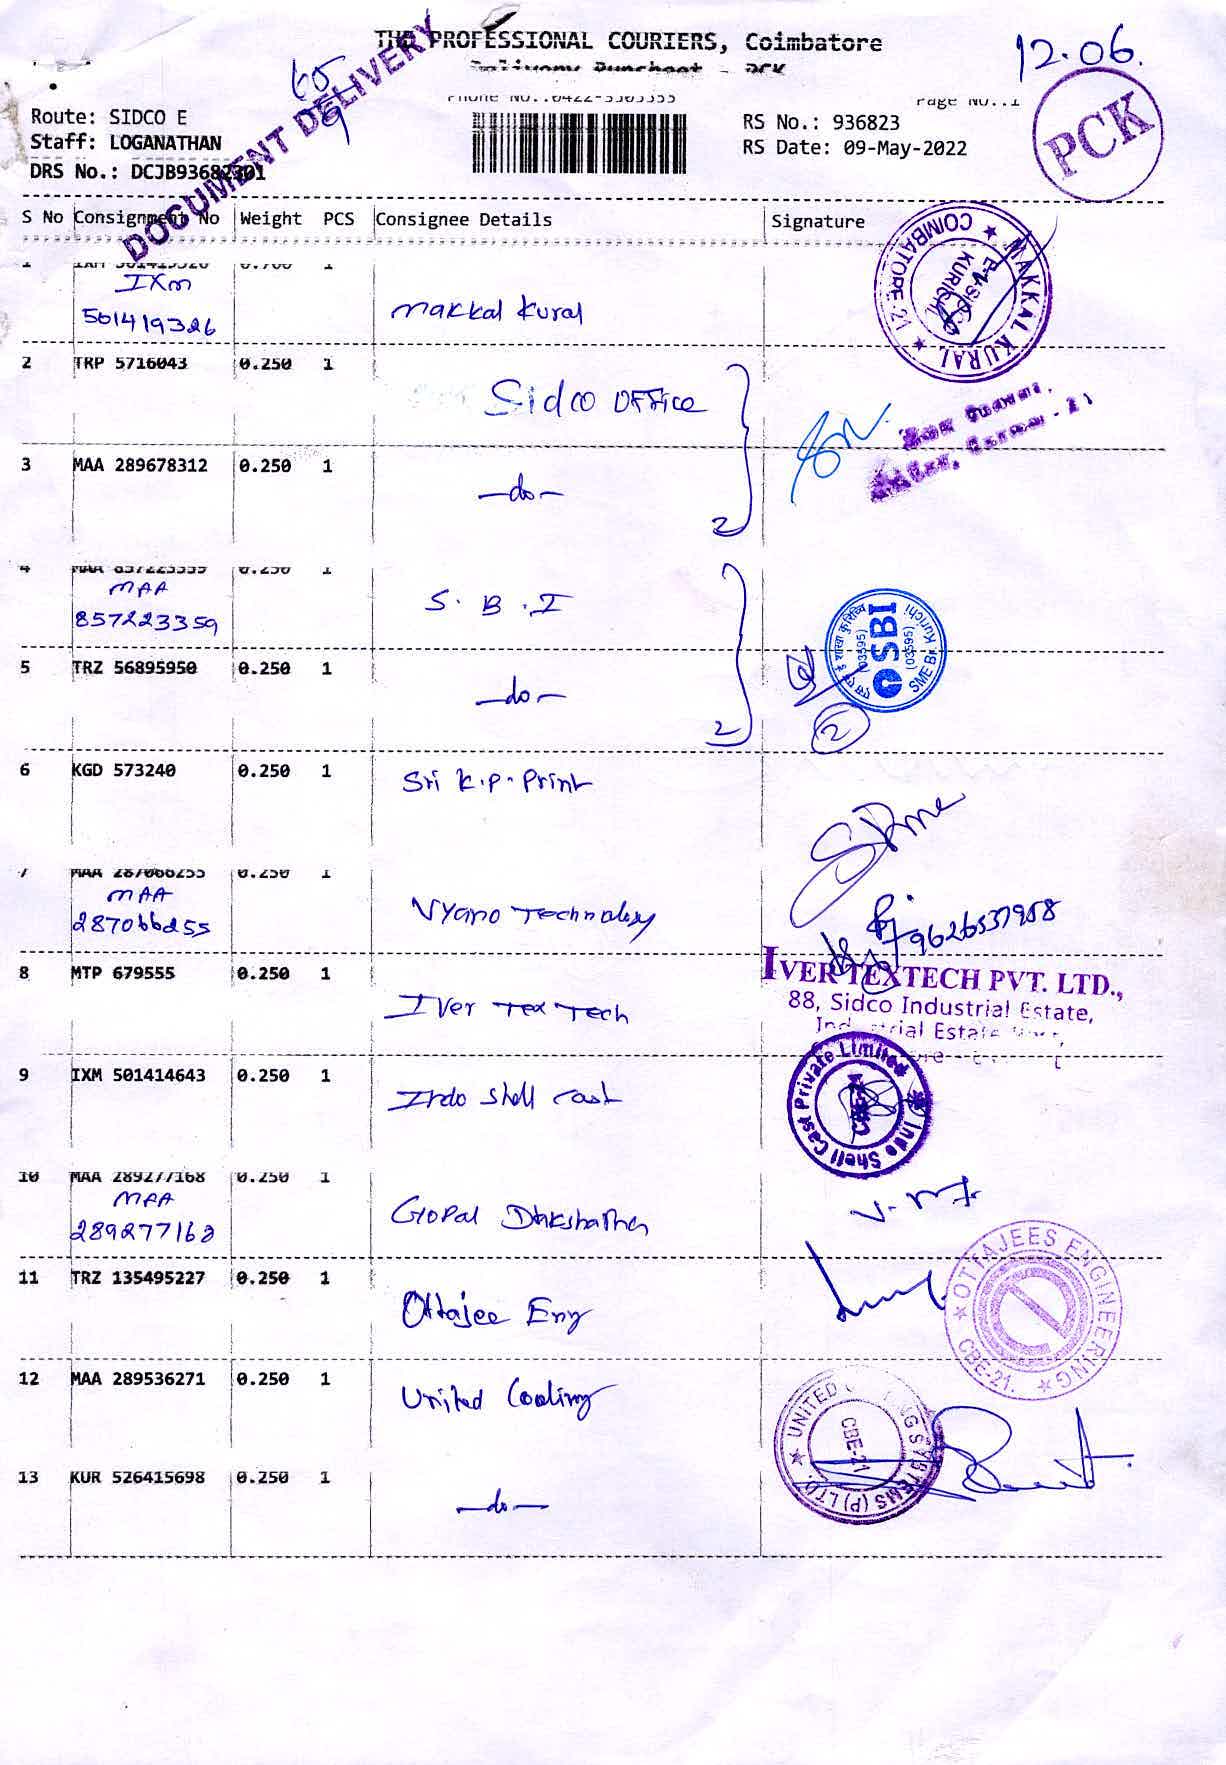 THE PROFESSIONAL COURIERS, Coimbatore
Delivery Runsheet - PCK
12.06.
DOCUMENT DELIVERY
PCK
Phone No.:0422-3303355
Page No.:1
Route: SIDCO E
RS No.: 936823
Staff: LOGANATHAN
RS Date: 09-May-2022
DRS No.: DCJB93682301
S No Consignment No Weight PCS Consignee Details Signature
1 IXM 501419326 0.700 1
IXM
501419326 Makkal Kural
MAKKAL KURAL ★ COIMBATORE-21 ★
KURICHI
2 TRP 5716043 0.250 1 Sidco Office
3 MAA 289678312 0.250 1 -do-
2
4 MAA 857223359 0.250 1
MAA
857223359 S. B. I
SBI
(03595)
SME Br. Kurichi
5 TRZ 56895950 0.250 1 -do-
2
2
6 KGD 573240 0.250 1 Sri K.P. Print
7 MAA 287066255 0.250 1
MAA
287066255 Vyano Technology
9626537958
8 MTP 679555 0.250 1 Iver Tex Tech
IVER TEXTECH PVT. LTD.,
88, Sidco Industrial Estate,
Industrial Estate
9 IXM 501414643 0.250 1 Indo Shell Cast
Indo Shell Cast Private Limited
10 MAA 289277168 0.250 1
MAA
289277168 Gopal
11 TRZ 135495227 0.250 1 Ottajee Eng
★ OTTAJEES ENGINEERING ★ CBE-21.
12 MAA 289536271 0.250 1 United Cooling
★ UNITED COOLING SYSTEMS (P) LTD.
CBE-21
13 KUR 526415698 0.250 1 -do-